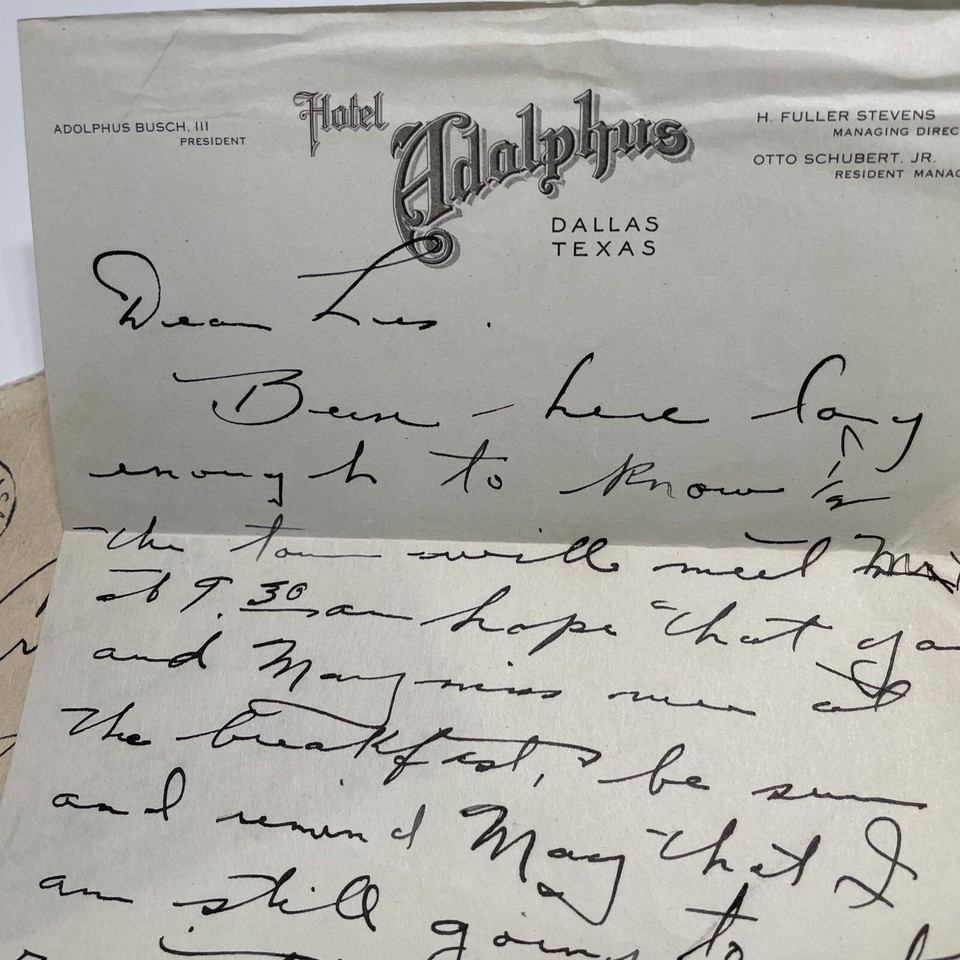 Hotel Adolphus
DALLAS
TEXAS
ADOLPHUS BUSCH, III
PRESIDENT
H. FULLER STEVENS
MANAGING DIREC
OTTO SCHUBERT, JR.
RESIDENT MANAG
Dear Les.
Been here long
enough to know 1/2
the town will meet
at 9.30 am hope that you
and May miss me at
the breakfast, be sure
and remind May that I
am still going to